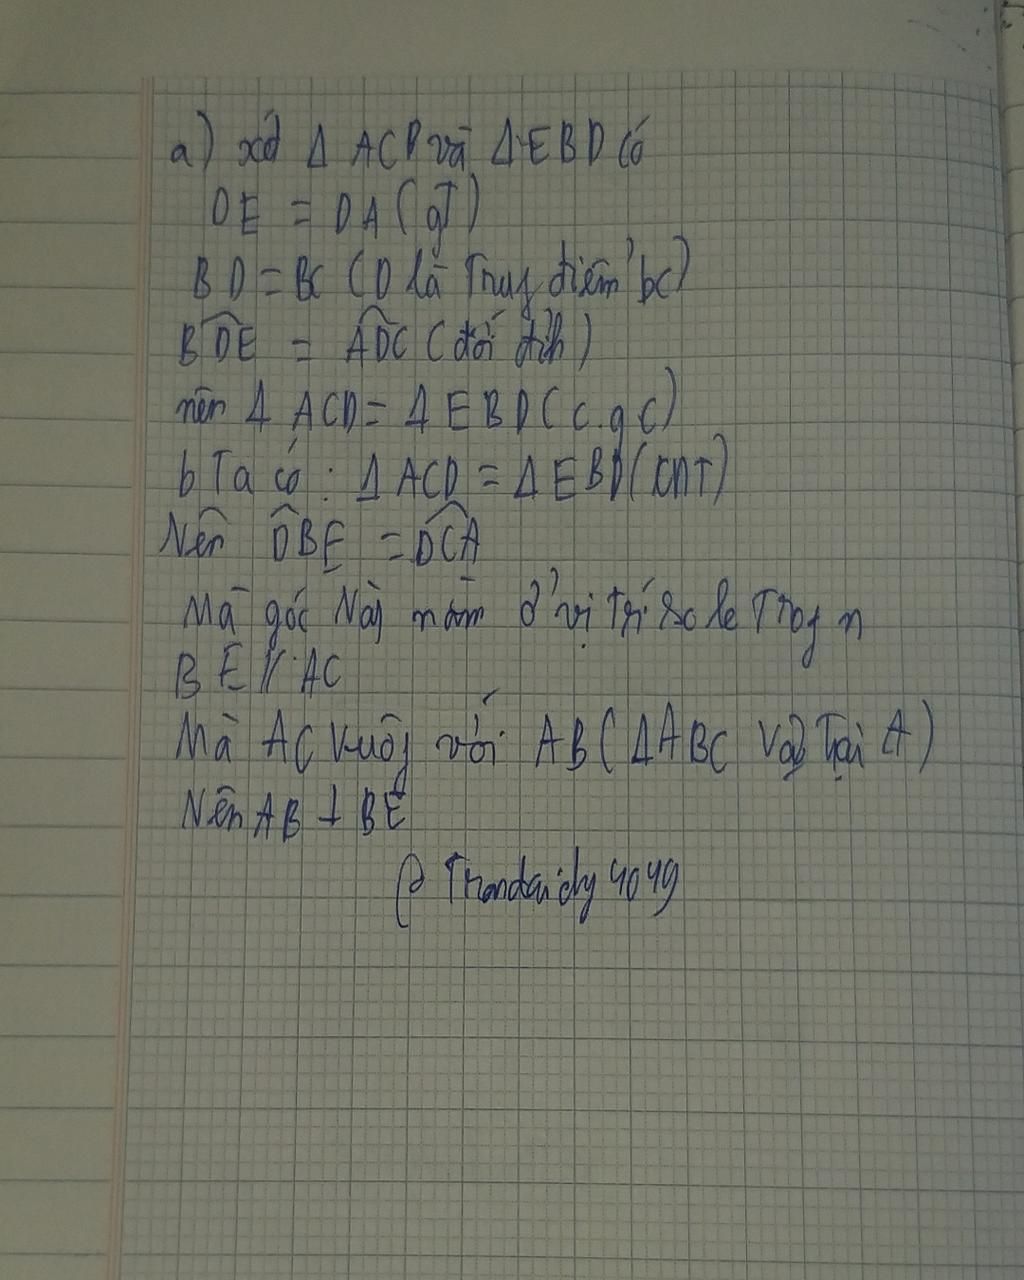 a) xét Δ ACD và Δ EBD có
DE = DA (gT)
BD = BC (D là Trug điểm bc)
BDE = ADC (đối đỉnh)
nên Δ ACD = Δ EBD (c.g.c)
b Ta có : Δ ACD = Δ EBD (CMT)
Nên DBE = DCA
Mà góc Này nằm ở vị Trí so le Trog n
BE // AC
Mà AC Vuôg với AB (Δ ABC Vg Tại A)
Nên AB ⊥ BE
@ Trandaidy 4049